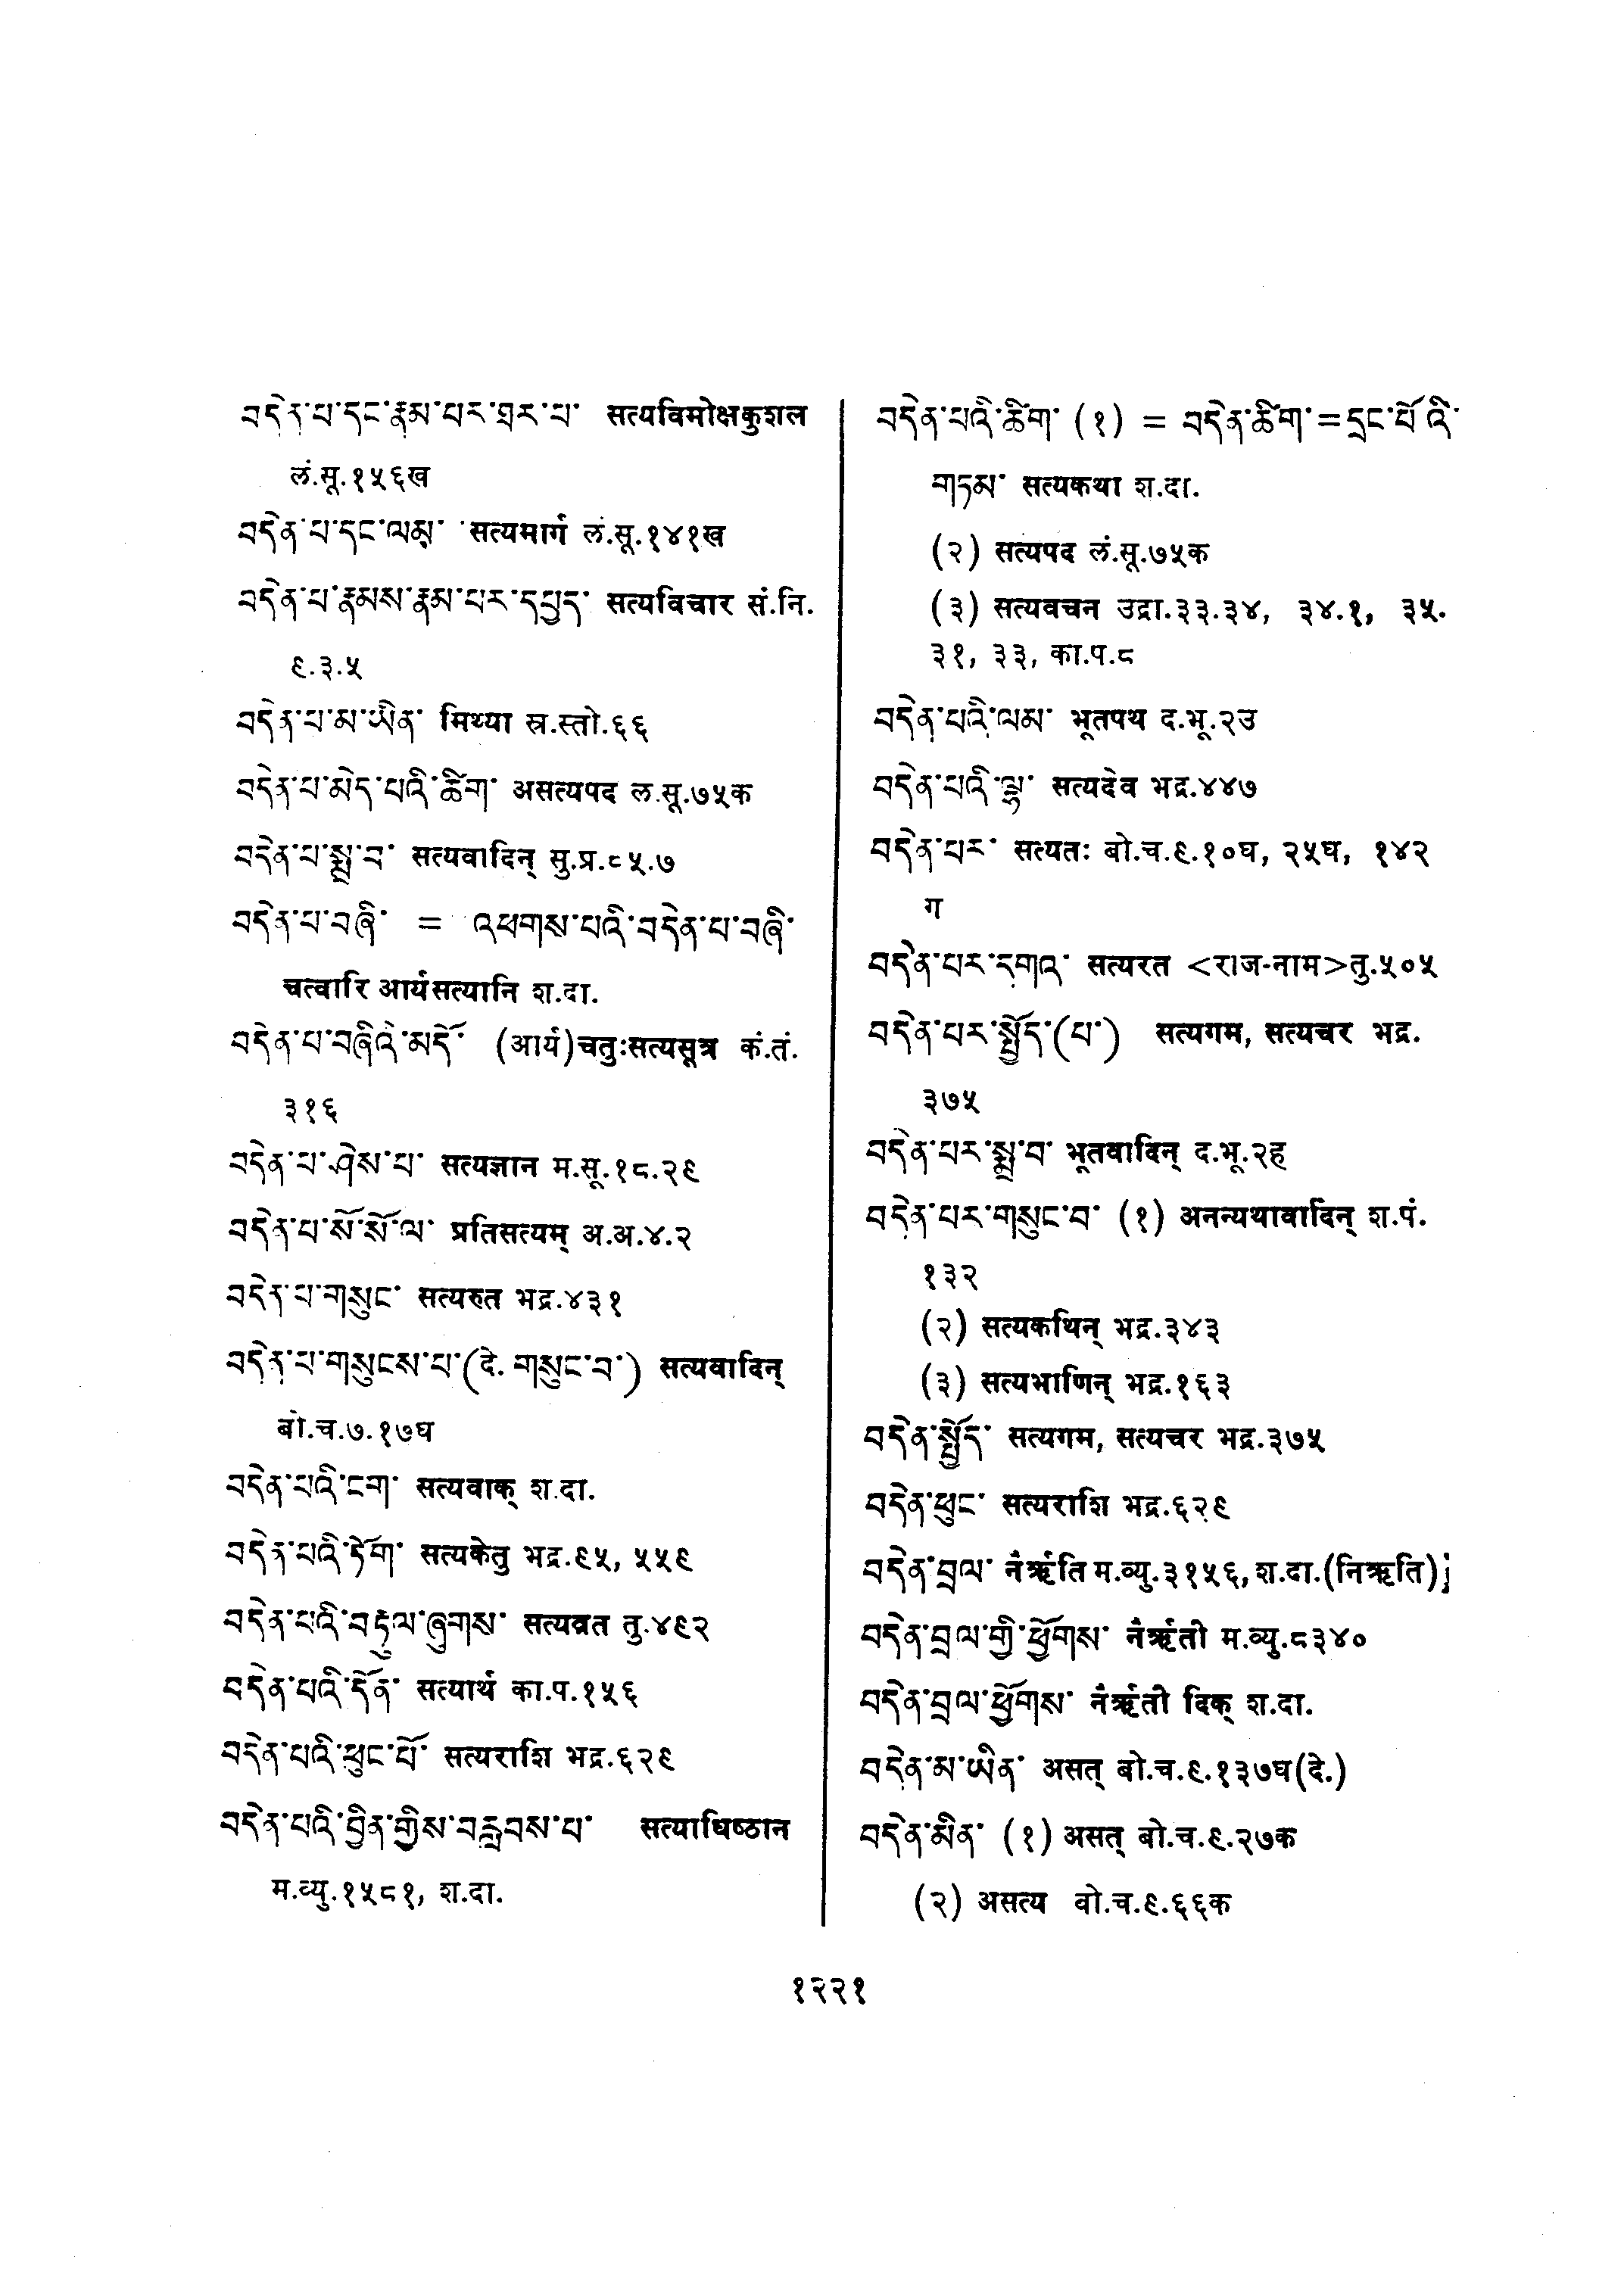 བདེན་པ་དང་རྣམ་པར་ཐར་པ་ सत्यविमोक्षकुशल
लं.सू.१५६ख
བདེན་པ་དང་ལམ་ सत्यमार्ग लं.सू.१४१ख
བདེན་པ་རྣམས་རྣམ་པར་དཔྱད་ सत्यविचार सं.नि.
९.३.५
བདེན་པ་མ་ཡིན་ मिथ्या स्र.स्तो.६६
བདེན་པ་མེད་པའི་ཚིག་ असत्यपद ल.सू.७५क
བདེན་པ་སྨྲ་བ་ सत्यवादिन् सु.प्र.८५.७
བདེན་པ་བཞི་ = འཕགས་པའི་བདེན་པ་བཞི་
चत्वारि आर्यसत्यानि श.दा.
བདེན་པ་བཞིའི་མདོ་ (आर्य)चतुःसत्यसूत्र कं.तं.
३१६
བདེན་པ་ཤེས་པ་ सत्यज्ञान म.सू.१८.२९
བདེན་པ་སོ་སོ་ལ་ प्रतिसत्यम् अ.अ.४.२
བདེན་པ་གསུང་ सत्यरुत भद्र.४३१
བདེན་པ་གསུངས་པ་(दे. གསུང་བ་) सत्यवादिन्
बो.च.७.१७घ
བདེན་པའི་ངག་ सत्यवाक् श.दा.
བདེན་པའི་ཏོག་ सत्यकेतु भद्र.९५, ५५९
བདེན་པའི་བརྟུལ་ཞུགས་ सत्यव्रत तु.४९२
བདེན་པའི་དོན་ सत्यार्थ का.प.१५६
བདེན་པའི་ཕུང་པོ་ सत्यराशि भद्र.६२९
བདེན་པའི་བྱིན་གྱིས་བརླབས་པ་ सत्याधिष्ठान
म.व्यु.१५८१, श.दा.
བདེན་པའི་ཚིག་ (१) = བདེན་ཚིག་ = དྲང་པོ་འི་
གཏམ་ सत्यकथा श.दा.
(२) सत्यपद लं.सू.७५क
(३) सत्यवचन उद्रा.३३.३४, ३४.१, ३५.
३१, ३३, का.प.८
བདེན་པའི་ལམ་ भूतपथ द.भू.२उ
བདེན་པའི་ལྷ་ सत्यदेव भद्र.४४७
བདེན་པར་ सत्यतः बो.च.९.१०घ, २५घ, १४२
ग
བདེན་པར་དགའ་ सत्यरत <राज-नाम>तु.५०५
བདེན་པར་སྤྱོད་(པ་) सत्यगम, सत्यचर भद्र.
३७५
བདེན་པར་སྨྲ་བ་ भूतवादिन् द.भू.२ह
བདེན་པར་གསུང་བ་ (१) अनन्यथावादिन् श.पं.
१३२
(२) सत्यकथिन् भद्र.३४३
(३) सत्यभाणिन् भद्र.१६३
བདེན་སྤྱོད་ सत्यगम, सत्यचर भद्र.३७५
བདེན་ཕུང་ सत्यराशि भद्र.६२९
བདེན་བྲལ་ नैर्ऋति म.व्यु.३१५६, श.दा.(निऋति);
བདེན་བྲལ་གྱི་ཕྱོགས་ नैर्ऋती म.व्यु.८३४०
བདེན་བྲལ་ཕྱོགས་ नैर्ऋती दिक् श.दा.
བདེན་མ་ཡིན་ असत् बो.च.९.१३७घ(दे.)
བདེན་མིན་ (१) असत् बो.च.९.२७क
(२) असत्य वो.च.९.६६क
१२२१